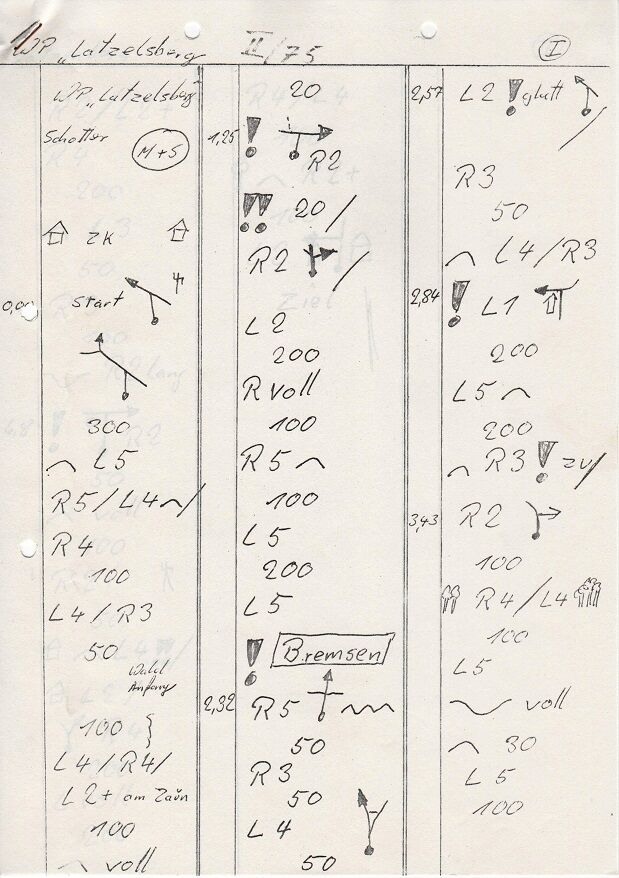 WP "Latzelsberg II/75 I
WP "Latzelsberg"
Schotter M+S
ZK
0,00 Start
300
L5
R5/L4 /
R4
100
L4/R3
50
Wald
Anfang
100 }
L4/R4/
L2+ am Zaun
100
voll
20
1,25 ! R2
!! 20/
R2 /
L2
200
R voll
100
R5
100
L5
200
L5
! Bremsen
2,32 R5
50
R3
50
L4
50
2,57 L2 ! glatt
/
R3
50
L4/R3
2,84 ! L1
200
L5
200
R3 ! zu/
3,43 R2
100
R4/L4
100
L5
voll
30
L5
100